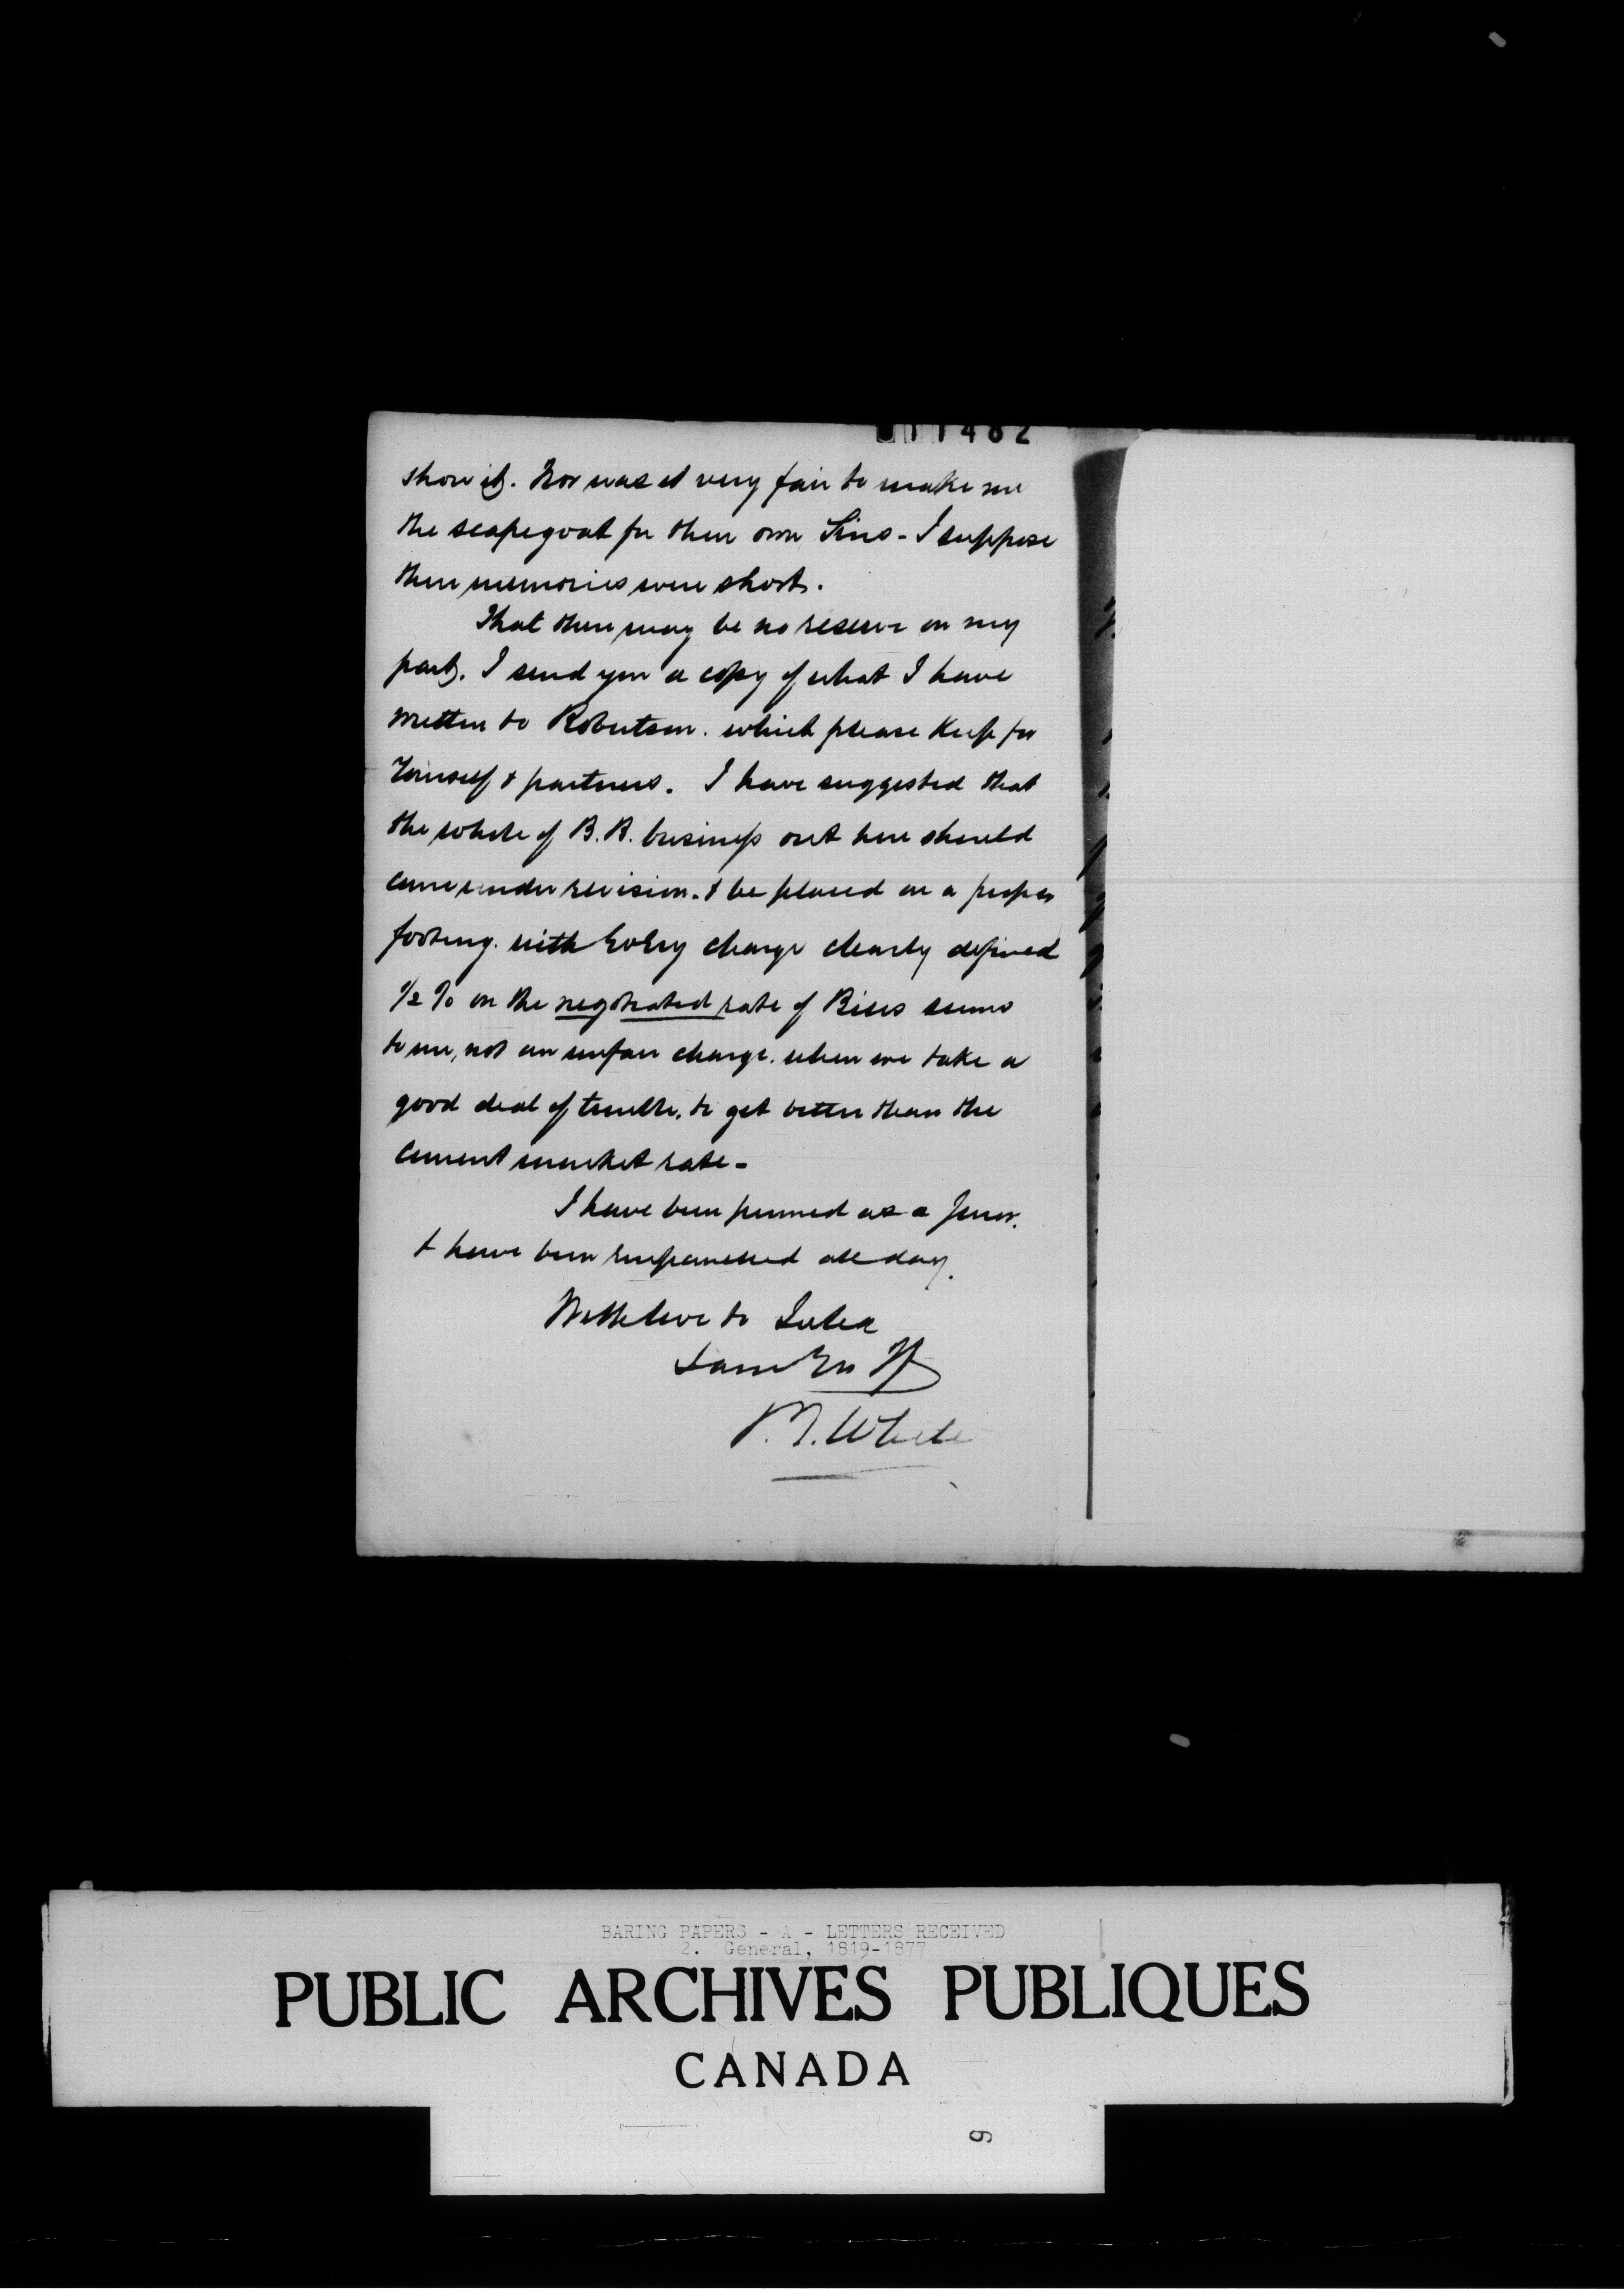 11482
show it. Nor was it very fair to make me
the scapegoat for their own Sins - I suppose
their memories were short.
That there may be no reserve on my
part. I send you a copy of what I have
written to Robertson. which please keep for
Yourself & partners. I have suggested that
the whole of B.B. business out here should
come under revision. & be placed on a proper
footing. with Every charge clearly defined
1/2 % on the negotiated rate of Bills seems
to me, not an unfair charge. when we take a
good deal of trouble. to get better than the
current market rate -
I have been summoned as a Juror.
& have been empanelled all day.
With love to
I am Yrs
White
BARING PAPERS - A - LETTERS RECEIVED
2. General, 1819-1877
PUBLIC ARCHIVES PUBLIQUES
CANADA
9